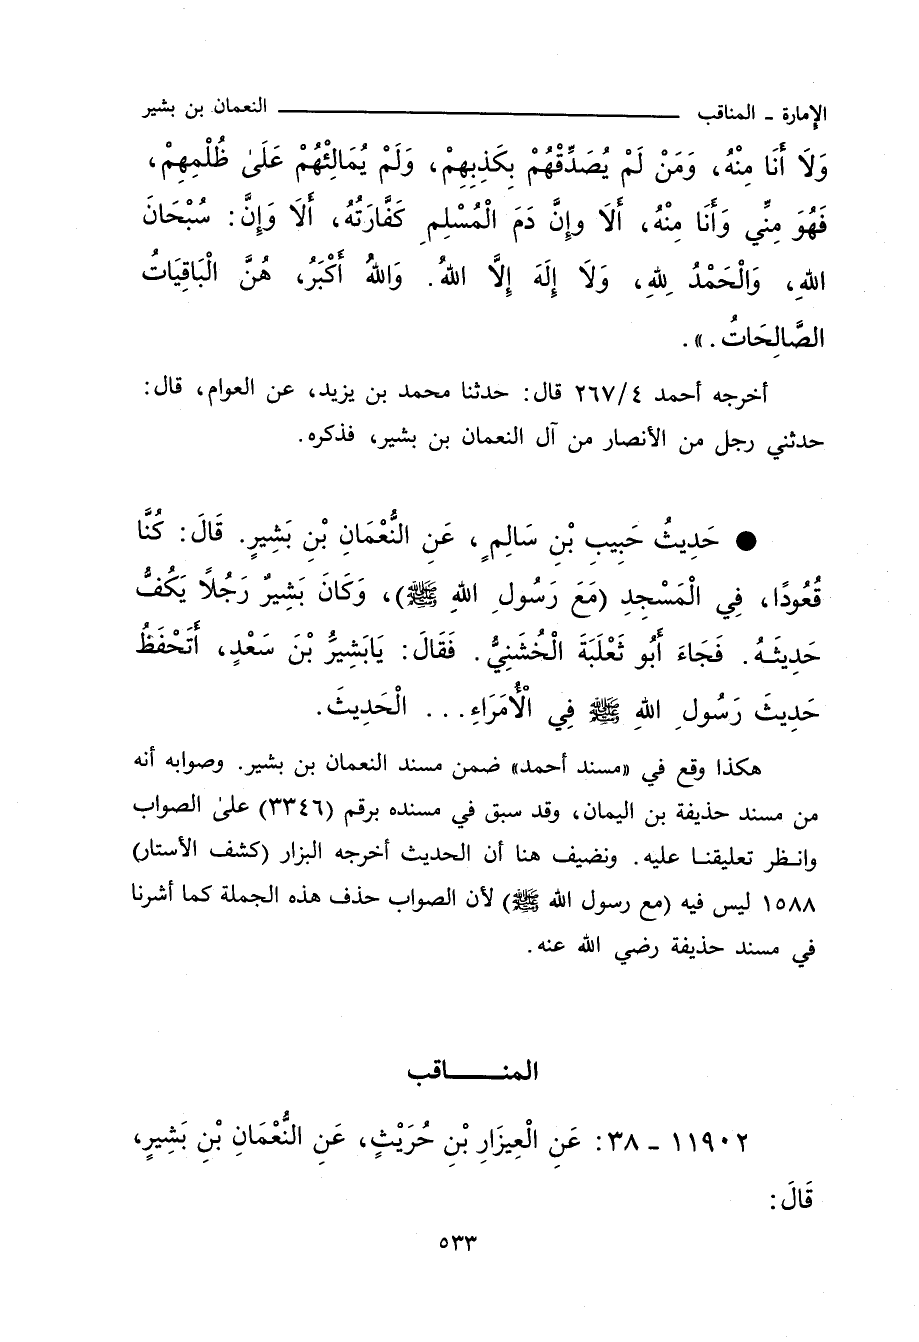 الإمارة ـ المناقب ــــــــــــــ النعمان بن بشير
وَلَا أَنَا مِنْهُ، وَمَنْ لَمْ يُصَدِّقْهُمْ بِكَذِبِهِمْ، وَلَمْ يُمَالِئْهُمْ عَلَىٰ ظُلْمِهِمْ،
فَهُوَ مِنِّي وَأَنَا مِنْهُ، أَلَا وإِنَّ دَمَ الْمُسْلِمِ كَفَّارَتُهُ، أَلَا وَإِنَّ: سُبْحَانَ
اللهِ، وَالْحَمْدُ لِلهِ، وَلَا إِلَهَ إِلَّا اللهُ. وَاللهُ أَكْبَرُ، هُنَّ الْبَاقِيَاتُ
الصَّالِحَاتُ.».
أخرجه أحمد ٢٦٧/٤ قال: حدثنا محمد بن يزيد، عن العوام، قال:
حدثني رجل من الأنصار من آل النعمان بن بشير، فذكره.
● حَدِيثُ حَبِيبِ بْنِ سَالِمٍ، عَنِ النُّعْمَانِ بْنِ بَشِيرٍ. قَالَ: كُنَّا
قُعُودًا، فِي الْمَسْجِدِ (مَعَ رَسُولِ اللهِ ﷺ)، وَكَانَ بَشِيرٌ رَجُلًا يَكُفُّ
حَدِيثَهُ. فَجَاءَ أَبُو ثَعْلَبَةَ الْخُشَنِيُّ. فَقَالَ: يَابَشِيرُ بْنَ سَعْدٍ، أَتَحْفَظُ
حَدِيثَ رَسُولِ اللهِ ﷺ فِي الْأُمَرَاءِ... الْحَدِيثَ.
هكذا وقع في «مسند أحمد» ضمن مسند النعمان بن بشير. وصوابه أنه
من مسند حذيفة بن اليمان، وقد سبق في مسنده برقم (٣٣٤٦) علىٰ الصواب
وانظر تعليقنا عليه. ونضيف هنا أن الحديث أخرجه البزار (كشف الأستار)
١٥٨٨ ليس فيه (مع رسول الله ﷺ) لأن الصواب حذف هذه الجملة كما أشرنا
في مسند حذيفة رضي الله عنه.
المنـــــاقب
١١٩٠٢ ـ ٣٨: عَنِ الْعِيزَارِ بْنِ حُرَيْثٍ، عَنِ النُّعْمَانِ بْنِ بَشِيرٍ،
قَالَ:
٥٣٣